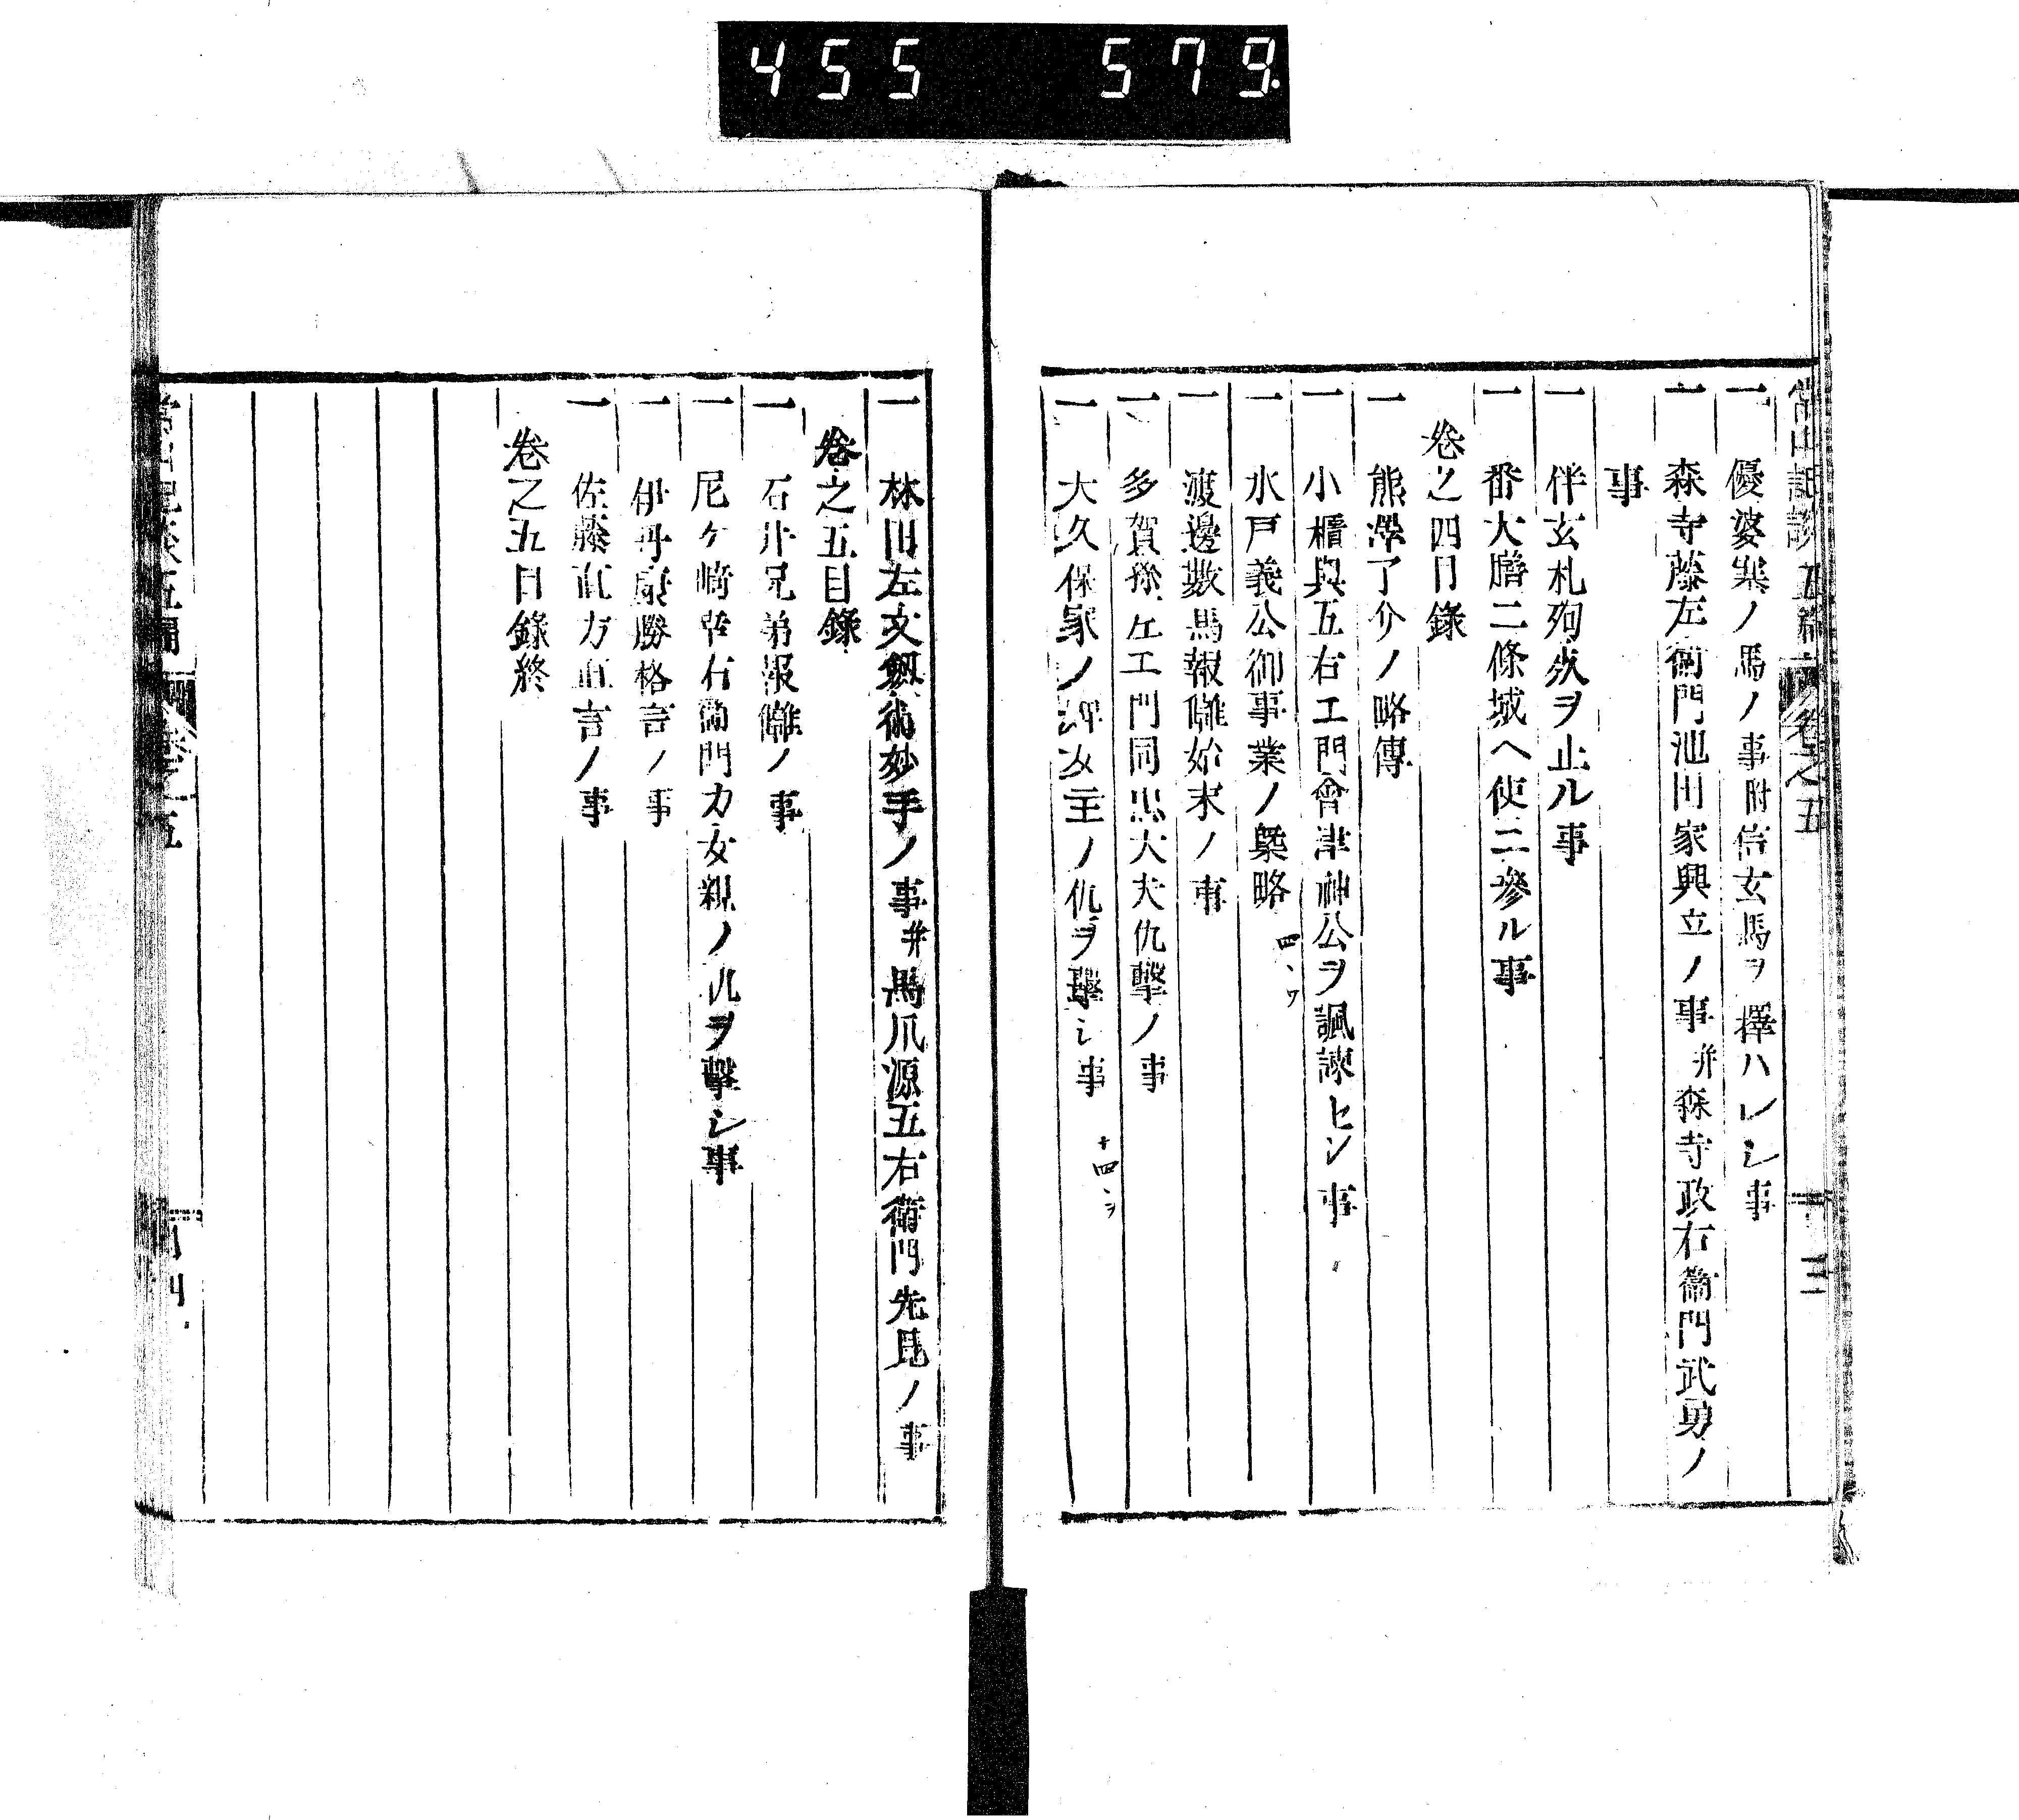 455 579.
一 優婆塞ノ馬ノ事附信玄馬ヲ擇ハレシ事
一 森寺藤左衞門池田家興立ノ事并森寺政右衞門武功ノ
事
一 伴玄札殉死ヲ止ル事
一 番大膳二條城ヘ使ニ參ル事
卷之四目錄
一 熊澤了介ノ略傳
一 小櫃與五右エ門會津神公ヲ諷諫セン事
一 水戸義公御事業ノ槩略 四、ウ
一 渡邊數馬報讎始末ノ事
一 多賀孫左エ門同忠大夫仇撃ノ事
一 大久保家ノ婢女主ノ仇ヲ撃シ事 十四、ヲ
一 林田左文劔術妙手ノ事并馬爪源五右衞門先見ノ事
卷之五目錄
一 石井兄弟報讎ノ事
一 尼ケ崎幸右衞門カ女親ノ仇ヲ撃シ事
一 伊丹康勝格言ノ事
一 佐藤直方直言ノ事
卷之五目錄終